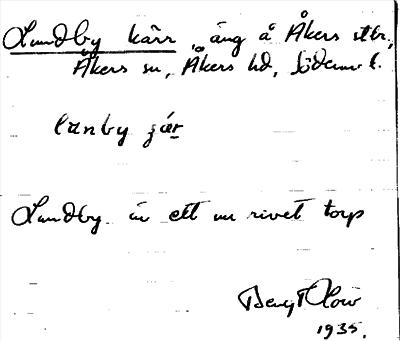 Lundby kärr, äng å Åkers utbr,
Åkers sn, Åkers hd, Söderml.
lanby
Lundby är ett nu rivet torp
Bengt
1935.